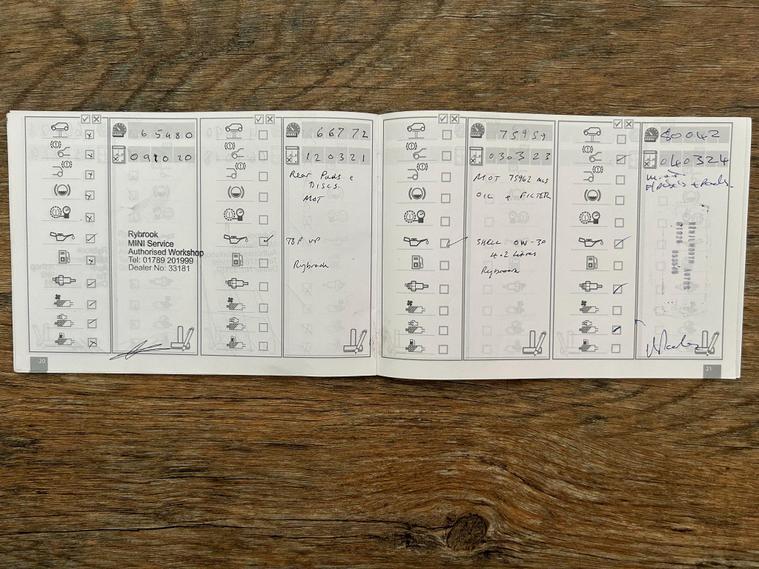 65480
09 20
Rybrook
MINI Service
Authorised Workshop
Tel: 01789 201999
Dealer No: 33181
20
66772
120321
Rear Pads &
Discs.
MOT
TOP UP
Rybrook
75959
030323
MOT 75962 MLS
OIL + FILTER
SHELL 0W-30
4.2 Litres
Rybrook
80042
040324
KENILWORTH
01926
21